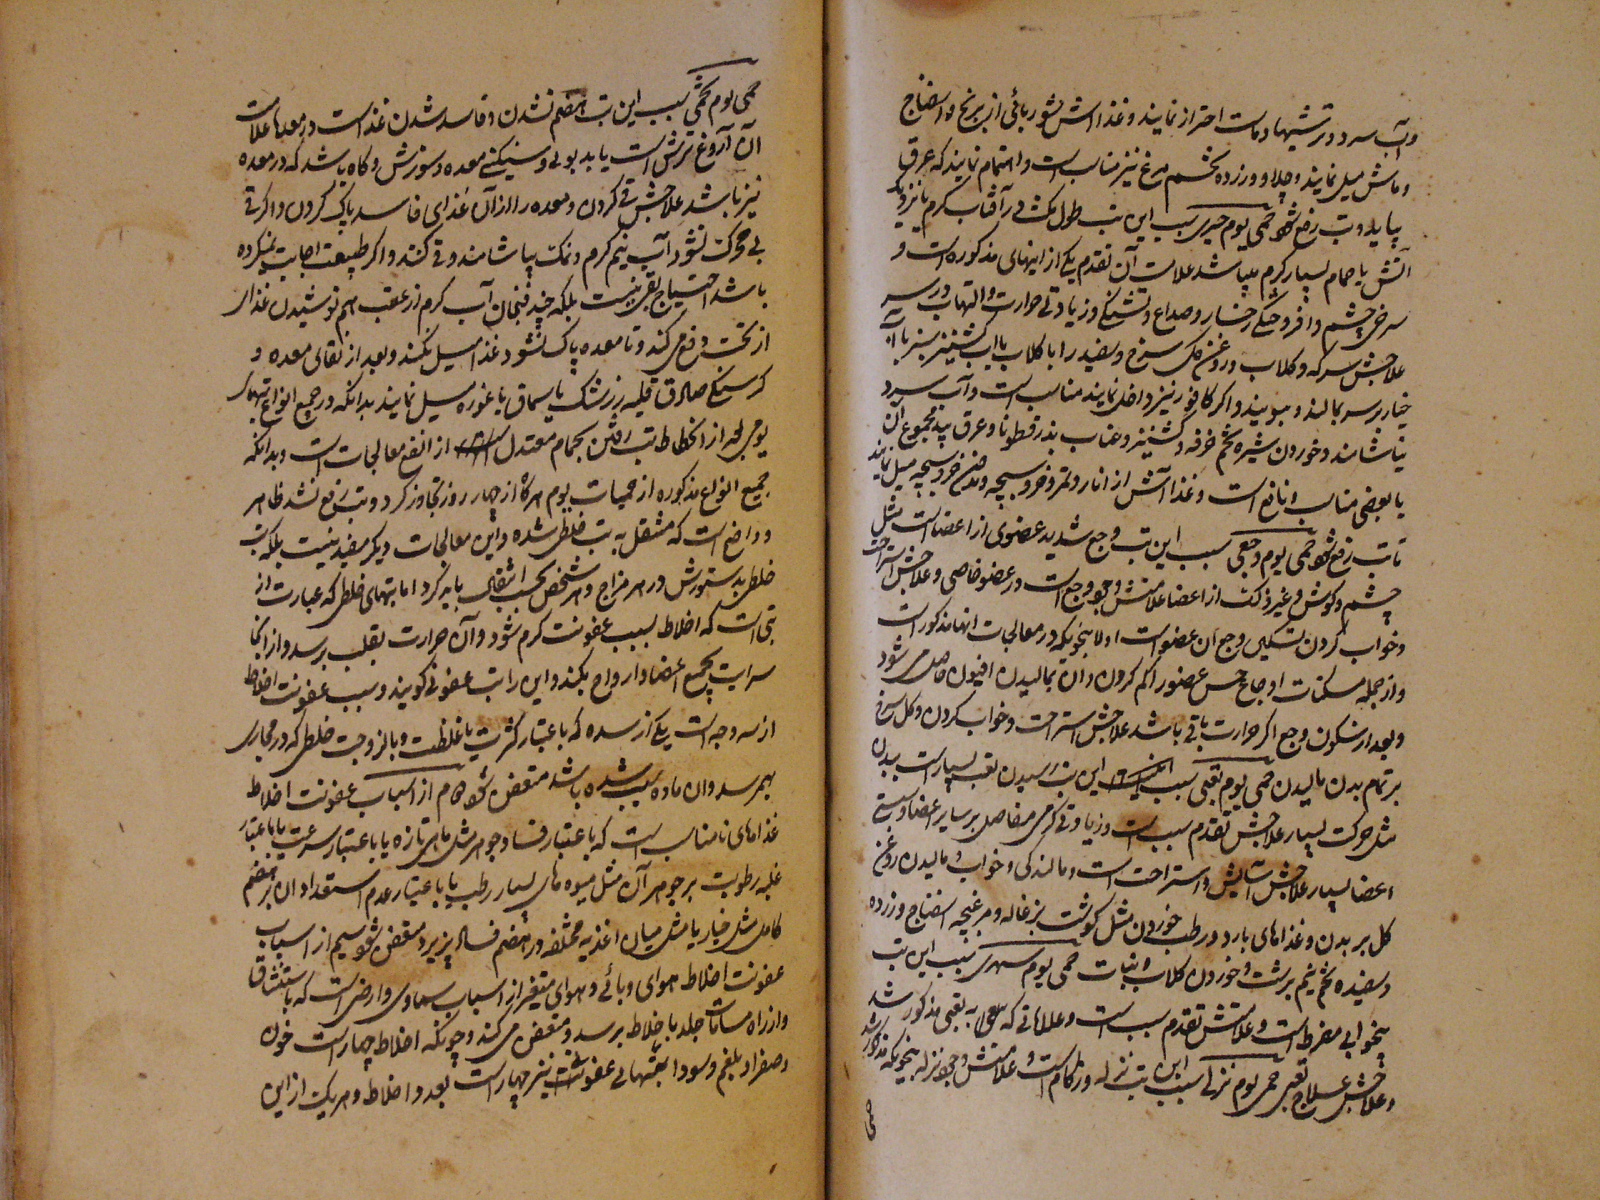 وآب سرد و ترشیها و ماست احتراز نمایند و غذا آش شوربائی از برنج و اسفناج
و ماش میل نمایند و چلاو و زرده تخم مرغ نیز مناسب است و اهتمام نمایند که عرق
بیاید و تب رفع شود حمی یوم حری سبب این تب طول مکث در آفتاب گرم یا نزدیک
آتش یا حمام بسیار گرم میباشد علامت آن تقدم یکی از اینهای مذکوره است و
سرخی چشم و افروختگی رخسار و صداع و تشنگی و زیادتی حرارت و التهاب در سر
علاجش سرکه و گلاب و روغن گل سرخ و سفید را با گلاب یا آب کشنیز سبز یا آب
خیار بر سر بمالند و ببویند و اگر کافور نیز داخل نمایند مناسب است و آب سرد
بیاشامند و خوردن شیره تخم خرفه و کشنیز و عناب بذرقطونا و عرق بید مجموع آن
یا بعضی مناسب و نافع است و غذا آش از انار و تمر و میل نمایند
تا تب رفع شود حمی یوم وجعی سبب این تب وجع شدید عضوی از اعضا است مثل
چشم و گوش و غیر ذلک از اعضا علامتش وجود وجع است در عضو خاصی و علاجش استراحت
و خواب کردن تسکین وجع آن عضو است اولا بنحویکه در معالجات آنها مذکور است
و از جمله مسکنات اوجاع حس عضو را کم کردن و آن بمالیدن افیون حاصل می شود
و بعد از سکون وجع اگر حرارت باقی باشد علاجش استراحت و خواب کردن و گل سرخ
بر تمام بدن مالیدن حمی یوم تعبی سبب این تب رسیدن تعب بسیار است ببدن
مثل حرکت بسیار علاجش تقدم سبب است و زیادتی گرمی مفاصل بر سایر اعضا و سستی
اعضا بسیار علاجش آسایش و استراحت است و مالندگی و خواب و مالیدن روغن
گل بر بدن و غذاهای بارد و رطب خوردن مثل گوشت بزغاله و مرغ بچه اسفناج و زرده
و سفیده تخم نیم برشت و خوردن گلاب و نبات حمی یوم سهری سبب این تب
بیخوابی مفرط است و علامتش تقدم سبب است و علاماتی که در تعبی مذکور شد
و علاجش علاج تعبی حمی یوم نزلی سبب این تب نزله و زکام است و علامتش وجود نزله بنحویکه مذکور شد
حمی
حمی یوم تخمی سبب این تب هضم نشدن و فاسد شدن غذا است در معده علامت
آن آروغ ترش است یا بدبوئی و سنگینی معده و سوزش و گاه باشد که در معده
نیز باشد علاجش قی کردن و معده را از آن غذای فاسد پاک کردن و اگر قی
بی محرک نشود آب نیم گرم و نمک بیاشامند و قی کنند و اگر طبیعت اجابت نکرده
باشد احتیاج بقی نیست بلکه چند فنجان آب گرم از عقب هم نوشیدن غذای
از تحت دفع می کند و تا معده پاک نشود غذا میل نکنند و بعد از نقای معده و
گرسنگی صادق قلیه زرشک یا سماق یا غوره میل نمایند بدانکه در جمیع انواع تبهای
یومی بعد از انحطاط تب رفتن بحمام معتدل از انفع معالجات است و بدانکه
جمیع انواع مذکوره از حمیات یوم هرگاه از چهار روز تجاوز کرد و تب رفع نشد ظاهر
و واضح است که منتقل به تب خلطی شده و این معالجات دیگر مفید نیست بلکه تب
خلطی بدستورش در هر مزاج و هر شخص بحسب باید کرد اما تبهای خلطی که عبارت از
تبی است که اخلاط بسبب عفونت گرم شود و آن حرارت بقلب برسد و از آنجا
سرایت بجمیع اعضا و ارواح بکند و این را تب عفونی گویند و سبب عفونت اخلاط
از سه وجه است یکی از سده که باعتبار کثرت یا غلظت و یا لزوجت خلطی که در مجاری
بهم رسد و آن ماده سبب شده باشد متعفن شود دوم از اسباب عفونت اخلاط
غذاهای نامناسب است که باعتبار فساد جوهر مثل ماهی تازه یا باعتبار سرعت یا باعتبار
غلبه رطوبت بر جوهر آن مثل میوه های بسیار رطب یا باعتبار عدم استعداد آن بر هضم
کامل مثل خیار یا مثل میان اغذیه مختلفه در هضم فساد پذیرد متعفن شود سیم از اسباب
عفونت اخلاط هوای وبائی و هوای متغیر از اسباب سماوی و ارضی است که باستنشاق
و از راه مسامات جلد باخلاط برسد و متعفن می کند و چونکه اخلاط چهار است خون
و صفرا و بلغم و سودا تبهائی عفونت نیز چهار است بعدد اخلاط و هر یک از این